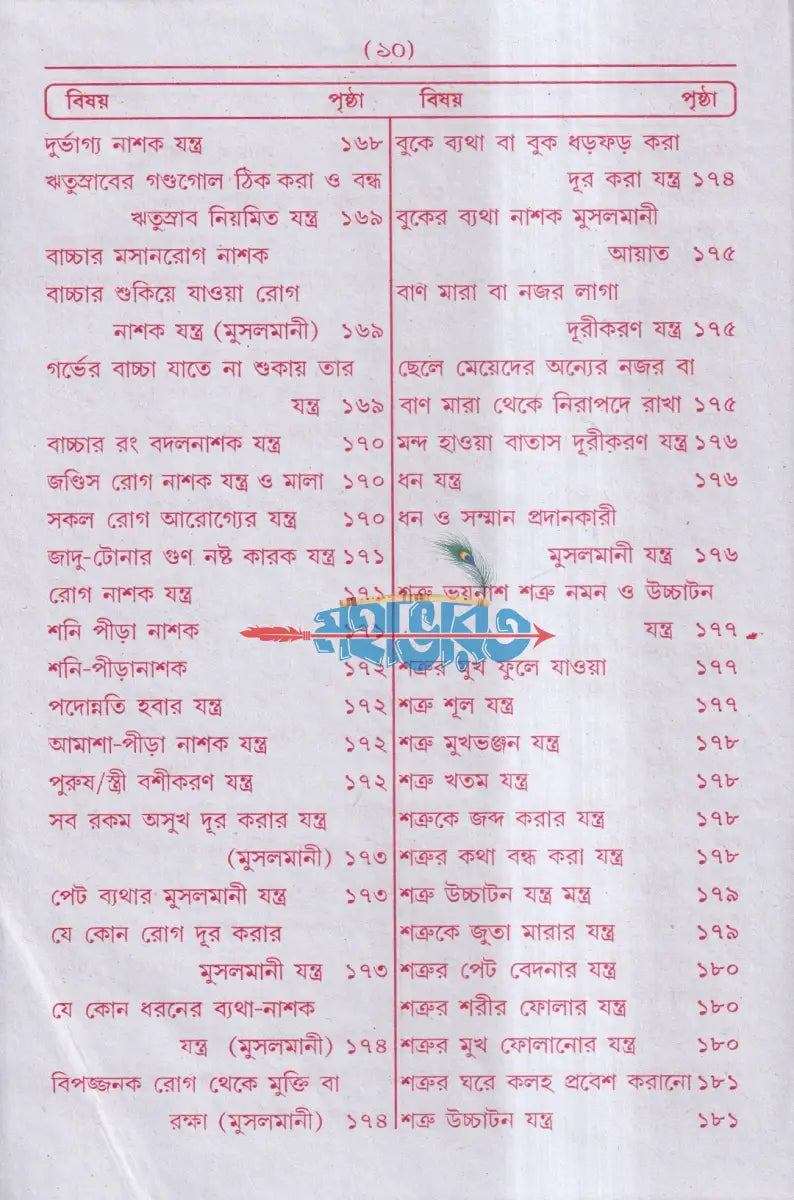 (১০)
বিষয় পৃষ্ঠা বিষয় পৃষ্ঠা
দুর্ভাগ্য নাশক যন্ত্র ১৬৮
ঋতুস্রাবের গণ্ডগোল ঠিক করা ও বন্ধ
ঋতুস্রাব নিয়মিত যন্ত্র ১৬৯
বাচ্চার মসানরোগ নাশক
বাচ্চার শুকিয়ে যাওয়া রোগ
নাশক যন্ত্র (মুসলমানী) ১৬৯
গর্ভের বাচ্চা যাতে না শুকায় তার
যন্ত্র ১৬৯
বাচ্চার রং বদলনাশক যন্ত্র ১৭০
জণ্ডিস রোগ নাশক যন্ত্র ও মালা ১৭০
সকল রোগ আরোগ্যের যন্ত্র ১৭০
জাদু-টোনার গুণ নষ্ট কারক যন্ত্র ১৭১
রোগ নাশক যন্ত্র ১৭১
শনি পীড়া নাশক
শনি-পীড়ানাশক ১৭২
পদোন্নতি হবার যন্ত্র ১৭২
আমাশা-পীড়া নাশক যন্ত্র ১৭২
পুরুষ/স্ত্রী বশীকরণ যন্ত্র ১৭২
সব রকম অসুখ দূর করার যন্ত্র
(মুসলমানী) ১৭৩
পেট ব্যথার মুসলমানী যন্ত্র ১৭৩
যে কোন রোগ দূর করার
মুসলমানী যন্ত্র ১৭৩
যে কোন ধরনের ব্যথা-নাশক
যন্ত্র (মুসলমানী) ১৭৪
বিপজ্জনক রোগ থেকে মুক্তি বা
রক্ষা (মুসলমানী) ১৭৪
বুকে ব্যথা বা বুক ধড়ফড় করা
দূর করা যন্ত্র ১৭৪
বুকের ব্যথা নাশক মুসলমানী
আয়াত ১৭৫
বাণ মারা বা নজর লাগা
দূরীকরণ যন্ত্র ১৭৫
ছেলে মেয়েদের অন্যের নজর বা
বাণ মারা থেকে নিরাপদে রাখা ১৭৫
মন্দ হাওয়া বাতাস দূরীকরণ যন্ত্র ১৭৬
ধন যন্ত্র ১৭৬
ধন ও সম্মান প্রদানকারী
মুসলমানী যন্ত্র ১৭৬
শত্রু ভয়নাশ শত্রু নমন ও উচ্চাটন
যন্ত্র ১৭৭
শত্রুর মুখ ফুলে যাওয়া ১৭৭
শত্রু শূল যন্ত্র ১৭৭
শত্রু মুখভঞ্জন যন্ত্র ১৭৮
শত্রু খতম যন্ত্র ১৭৮
শত্রুকে জব্দ করার যন্ত্র ১৭৮
শত্রুর কথা বন্ধ করা যন্ত্র ১৭৮
শত্রু উচ্চাটন যন্ত্র মন্ত্র ১৭৯
শত্রুকে জুতা মারার যন্ত্র ১৭৯
শত্রুর পেট বেদনার যন্ত্র ১৮০
শত্রুর শরীর ফোলার যন্ত্র ১৮০
শত্রুর মুখ ফোলানোর যন্ত্র ১৮০
শত্রুর ঘরে কলহ প্রবেশ করানো ১৮১
শত্রু উচ্চাটন যন্ত্র ১৮১
মহাভারত